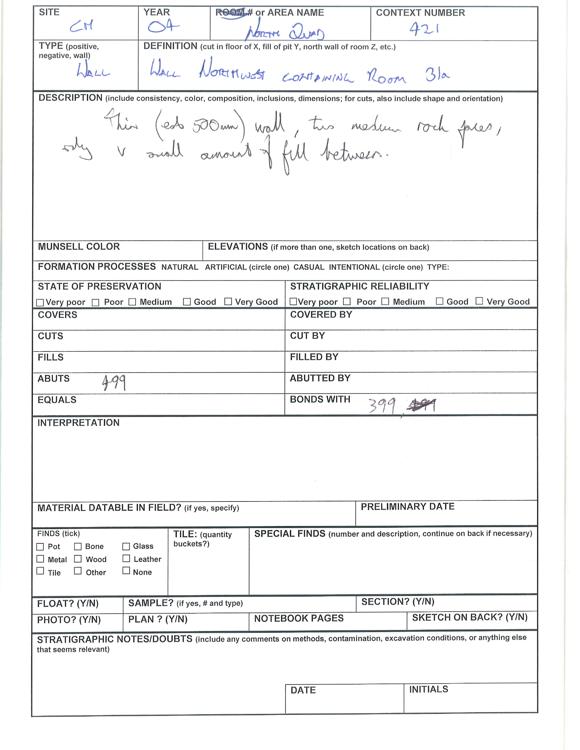 SITE YEAR ROOM # or AREA NAME CONTEXT NUMBER
CH 04 NORTH QUAD 421
TYPE (positive, negative, wall) DEFINITION (cut in floor of X, fill of pit Y, north wall of room Z, etc.)
WALL WALL NORTHWEST CONTAINING ROOM 31a
DESCRIPTION (include consistency, color, composition, inclusions, dimensions; for cuts, also include shape and orientation)
Thin (estb 500mm) wall, two medium rock faces,
only v small amount of fill between.
MUNSELL COLOR ELEVATIONS (if more than one, sketch locations on back)
FORMATION PROCESSES NATURAL ARTIFICIAL (circle one) CASUAL INTENTIONAL (circle one) TYPE:
STATE OF PRESERVATION STRATIGRAPHIC RELIABILITY
Very poor Poor Medium Good Very Good Very poor Poor Medium Good Very Good
COVERS COVERED BY
CUTS CUT BY
FILLS FILLED BY
ABUTS 499 ABUTTED BY
EQUALS BONDS WITH 399
INTERPRETATION
MATERIAL DATABLE IN FIELD? (if yes, specify) PRELIMINARY DATE
FINDS (tick) TILE: (quantity buckets?) SPECIAL FINDS (number and description, continue on back if necessary)
Pot Bone Glass
Metal Wood Leather
Tile Other None
FLOAT? (Y/N) SAMPLE? (if yes, # and type) SECTION? (Y/N)
PHOTO? (Y/N) PLAN ? (Y/N) NOTEBOOK PAGES SKETCH ON BACK? (Y/N)
STRATIGRAPHIC NOTES/DOUBTS (include any comments on methods, contamination, excavation conditions, or anything else
that seems relevant)
DATE INITIALS